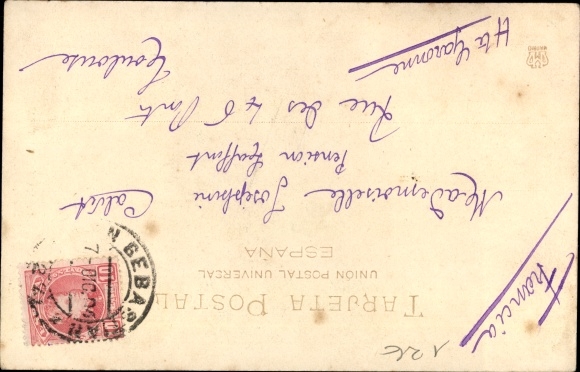 TARJETA POSTAL
UNIÓN POSTAL UNIVERSAL
ESPAÑA
Mademoiselle Josephine Calvet
Pension
Rue des 46 Ponts
Toulouse
Hte Garonne
Francia
N SEBAS
7 DIC 04
10
126